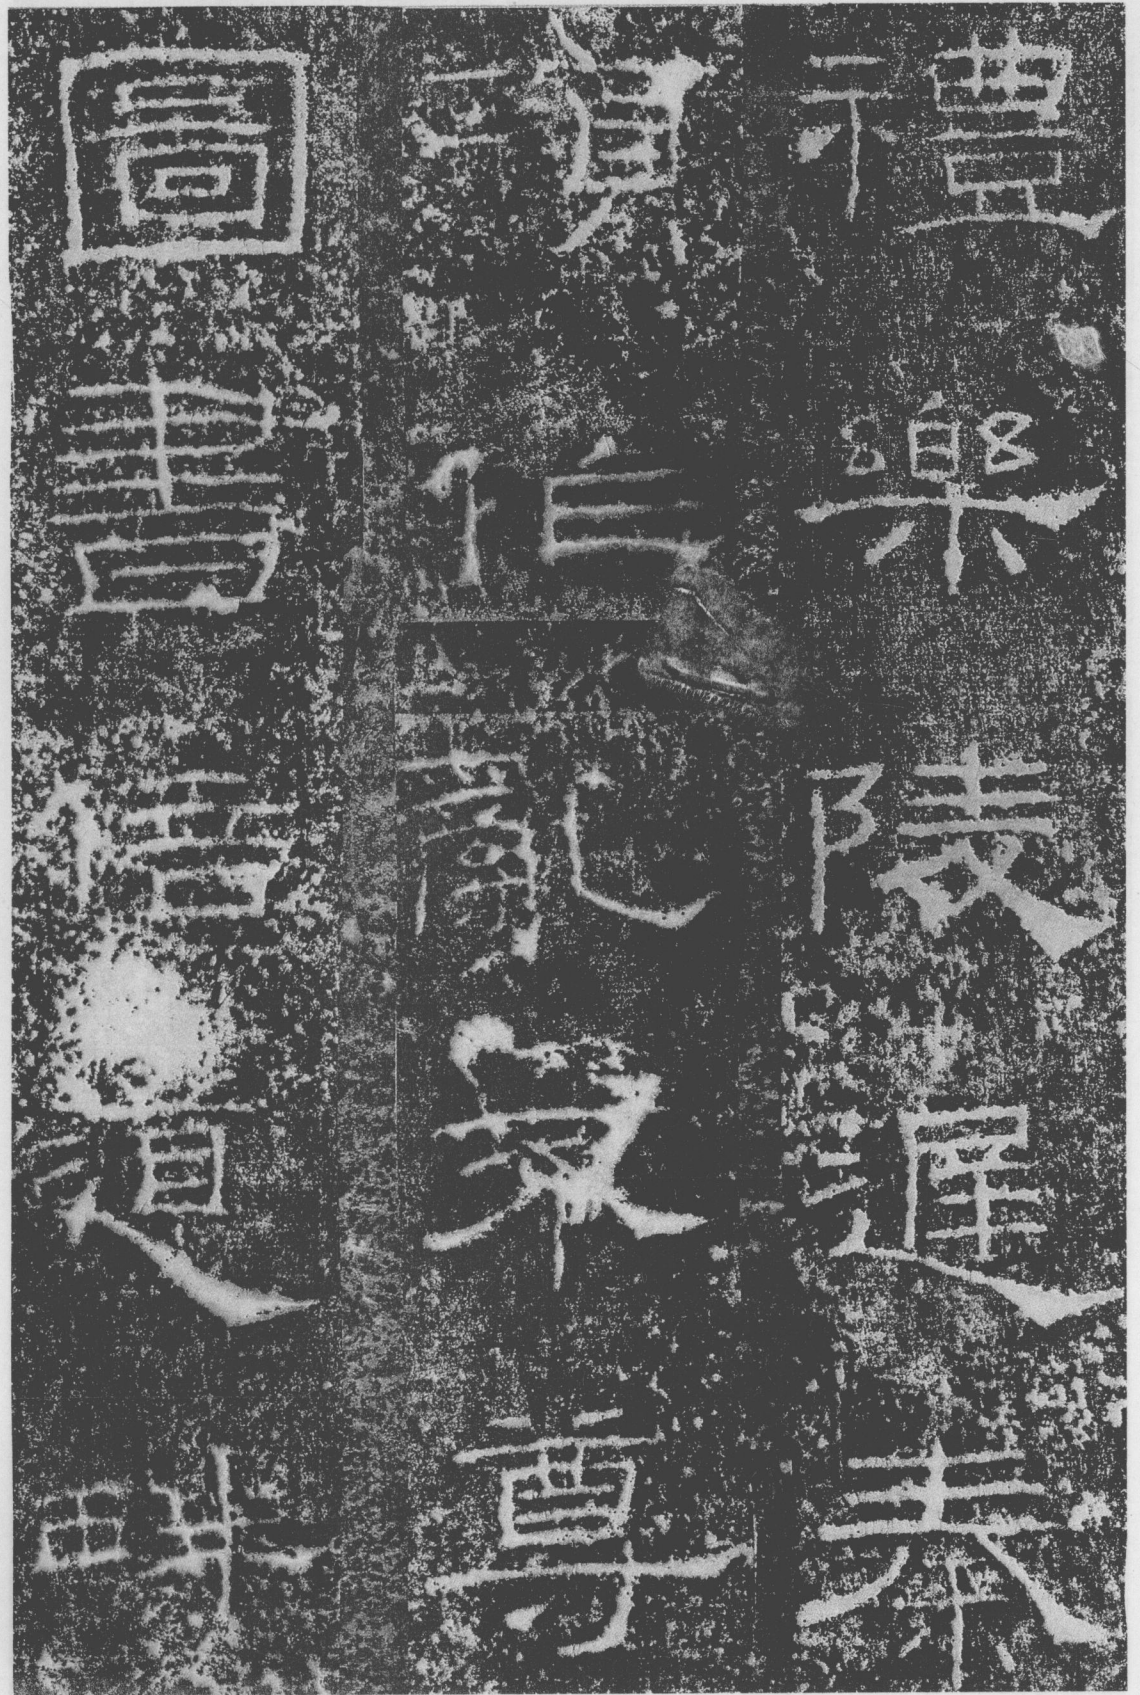 禮樂陵遲秦
項作亂不尊
圖書倍道畔